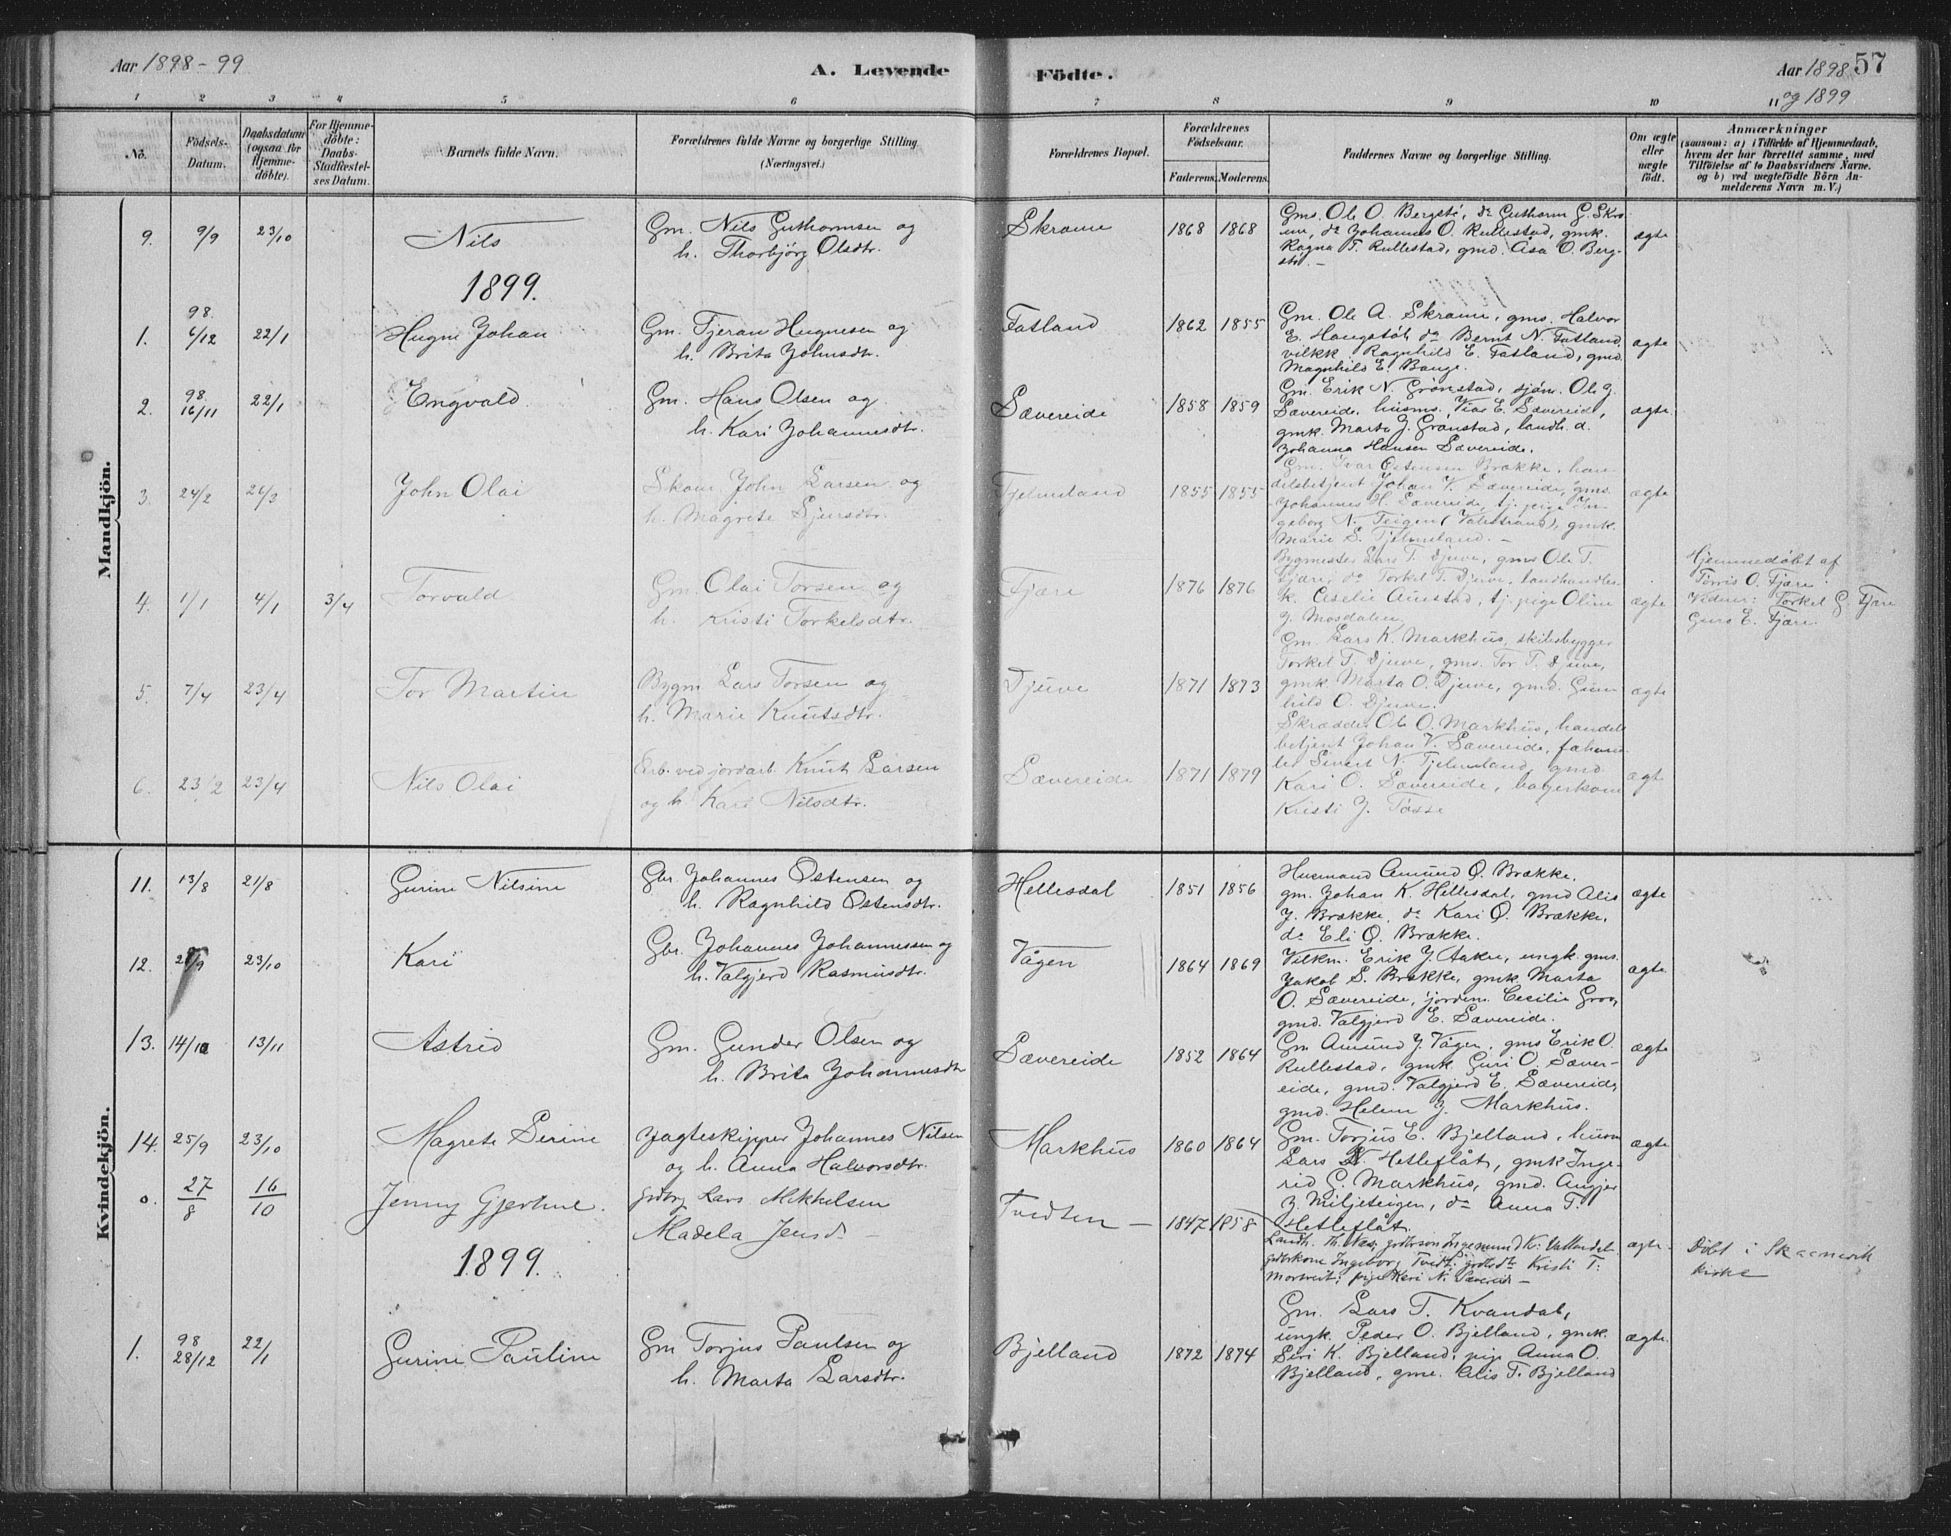 Aar 1898-99
A. Levende Födte.
Aar 1898 57
og 1899
1 2 3 4 5 6 7 8 9 10 11
No.
Födsels-Datum.
Daabsdatum (ogsaa for Hjemmedöbte).
For Hjemmedöbte: Daabs-Stadfæstelses Datum.
Barnets fulde Navn.
Forældrenes fulde Navne og borgerlige Stilling. (Næringsvei.)
Forældrenes Bopæl.
Forældrenes Födselsaar.
Faderens. Moderens.
Faddernes Navne og borgerlige Stilling.
Om ægte eller uægte födt.
Anmærkninger
(saasom: a) i Tilfælde af Hjemmedaab, hvem der har forrettet samme, med Tilföielse af to Daabsvidners Navne. og b) ved uegtefödte Börn Anmelderens Navn m. V.)
Mandkjön.
9. 9/9 23/10 Nils
Gm. Nils Guthormsen og
h. Thorbjörg Olsdtr.
Skrame 1868 1868
Gms. Ole O. Bergstö, do Guthorm G. Skra
me, do Johannes O. Rullestad, gmk.
Ragna T. Rullestad, gmd. Åsa O. Berg-
stö. -
ægte
1899.
1. 98. 6/12 22/1 Hugne Johan
Gm. Tjeran Hugnesen og
h. Brita Johnsdtr.
Fatland 1862 1855
Gm. Ole A. Skrame, gms. Halvor
E. Haugstöl, do Bernt N. Fatland,
vilkk Ragnhild E. Fatland, gmd.
Magnhild E. Bauge.
ægte
2. 98. 16/11 22/1 Engvald
Gm. Hans Olsen og
h. Kari Johannesdtr.
Sævereide 1858 1859
Gm. Erik N. Grönstad, sjöm. Ole J.
Sævereide, husms. Viar E. Sævereide,
gmk. Marta J. Grönstad, landh. d.
Johanna Hansen Sævereide.
ægte.
3. 24/2 26/3 John Olai
Skom. John Larsen og
h. Magrete Sjursdtr.
Tjelmeland 1855 1855
Gm. Ivar Östensen Brække, han-
delsbetjent Johan V. Sævereide, gms.
Johannes H. Sævereide, tj. pige In-
geborg N. Teigen (Valestrand), gmk.
Marie S. Tjelmeland. -
ægte
4. 1/1 4/1 3/4 Torvald
Gm. Olai Torsen og
h. Kristi Torkelsdtr.
Fjære 1876 1876
Bygmester Lars T. Djuve, gms Ole T.
Fjære, do Torkel T. Djuve, landhandler
k. Ceselie Aunstad, tj. pige Oline
J. Mosdalen.
ægte
Hjemmedöbt af
Torris O. Fjære.
Vidner: Torkel G. Fjære
Guro E. Fjære.
5. 7/4 23/4 Tor Martin
Bygm Lars Torsen og
h. Marie Knutsdtr.
Djuve 1871 1873
Gm. Lars K. Markhus, skibsbygger
Torkel T. Djuve, gms. Tor T. Djuve,
gmk. Marta O. Djuve, gmd. Gun-
hild O. Djuve.
ægte
6. 23/2 23/4 Nils Olai
Arb. ved jordarb. Knut Larsen
og h. Kari Nilsdtr.
Sævereide 1871 1879
Skrædder Ole O. Markhus, handels
betjent Johan V. Sævereide,
Sivert N. Tjelmeland, gmd.
Kari O. Sævereide, bagerkone
Kristi J. Tösse
ægte
Kvindekjön.
11. 13/8 21/8 Gurine Nilsine
Gbr. Johannes Östensen og
h. Ragnhild Östensdtr.
Hellesdal 1851 1856
Husmand Amund Ö. Brække.
gm. Johan K. Hellesdal, gmd Alis
J. Brække, do Kari Ö. Brække,
do Eli Ö. Brække.
ægte
12. 23/10 Kari
Gbr. Johannes Johannessen og
h. Valgjerd Rasmusdtr.
Vågen 1864 1869
Vilkm. Erik J. Aakre, ungk. gms.
Jakob S. Brække, gmk. Marta
O. Sævereide, jordem. Cecilie Groo,
gmd. Valgjerd E. Sævereide.
ægte
13. 14/10 13/11 Astrid
Gm. Gunder Olsen og
h. Brita Johannesdtr
Sævereide 1852 1864
Gm Amund J. Vågen, gms Erik O.
Rullestad, gmk. Guri O. Sæver-
eide, gmd. Valgjerd E. Sævereide,
gmd. Helene J. Markhus.
ægte
14. 25/9 23/10 Magrete Serine
Jagteskipper Johannes Nilsen
og h. Anna Halvorsdtr.
Markhus 1860 1864
Gm. Torjus E. Bjelland, husm
Lars N. Hetleflåt, gmk Inge-
rid G. Markhus, gmd. Angjer
J. Miljeteigen, do Anna T.
Hetleflåt.
ægte
0. 27/8 16/10 Jenny Gjertine.
gdbrg Lars Mikkelsen
Madela Jensd. -
Tvedten - 1847 1858
Landh. Th. Næs, gdbrson Ingemund K. Vallandal
gdbrkone Ingeborg Tvedt, gdbdtr Kristi T.
Mortveit; pige Kari N. Sævereid -
ægte.
Döbt i Skaanevik
kirke
1899.
1. 98 28/12 22/1 Gurine Pauline
Gm Torjus Paulsen og
h. Marta Larsdtr.
Bjelland 1872 1874
Gm. Lars T. Kvandal,
ungk. Peder O. Bjelland, gmk.
Siri K. Bjelland, pige Anna O.
Bjelland, gmd. Alis T. Bjelland
ægte.